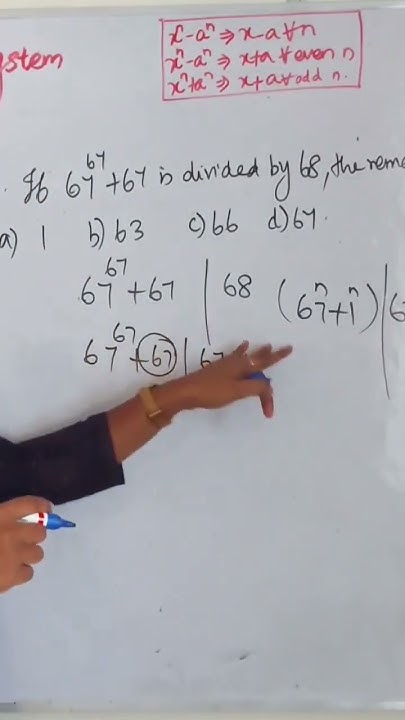 xⁿ-aⁿ ⇒ x-a ∀ n
xⁿ-aⁿ ⇒ x+a ∀ even n
xⁿ+aⁿ ⇒ x+a ∀ odd n.
If 67⁶⁷+67 is divided by 68, the
a) 1 b) 63 c) 66 d) 67.
67⁶⁷+67 | 68 (67ⁿ+1ⁿ) |
67⁶⁷+67 | 67